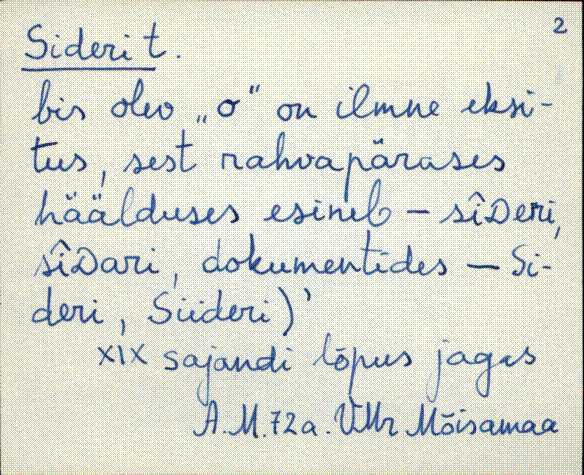 2
Siderit.
bis olev „o" on ilmne eksi-
tus, sest rahvapärases
häälduses esineb – sîDeri,
sîDari, dokumentides – Si-
deri, Siideri)'
XIX sajandi lõpus jagas
A.M. 72a. VMr Mõisamaa